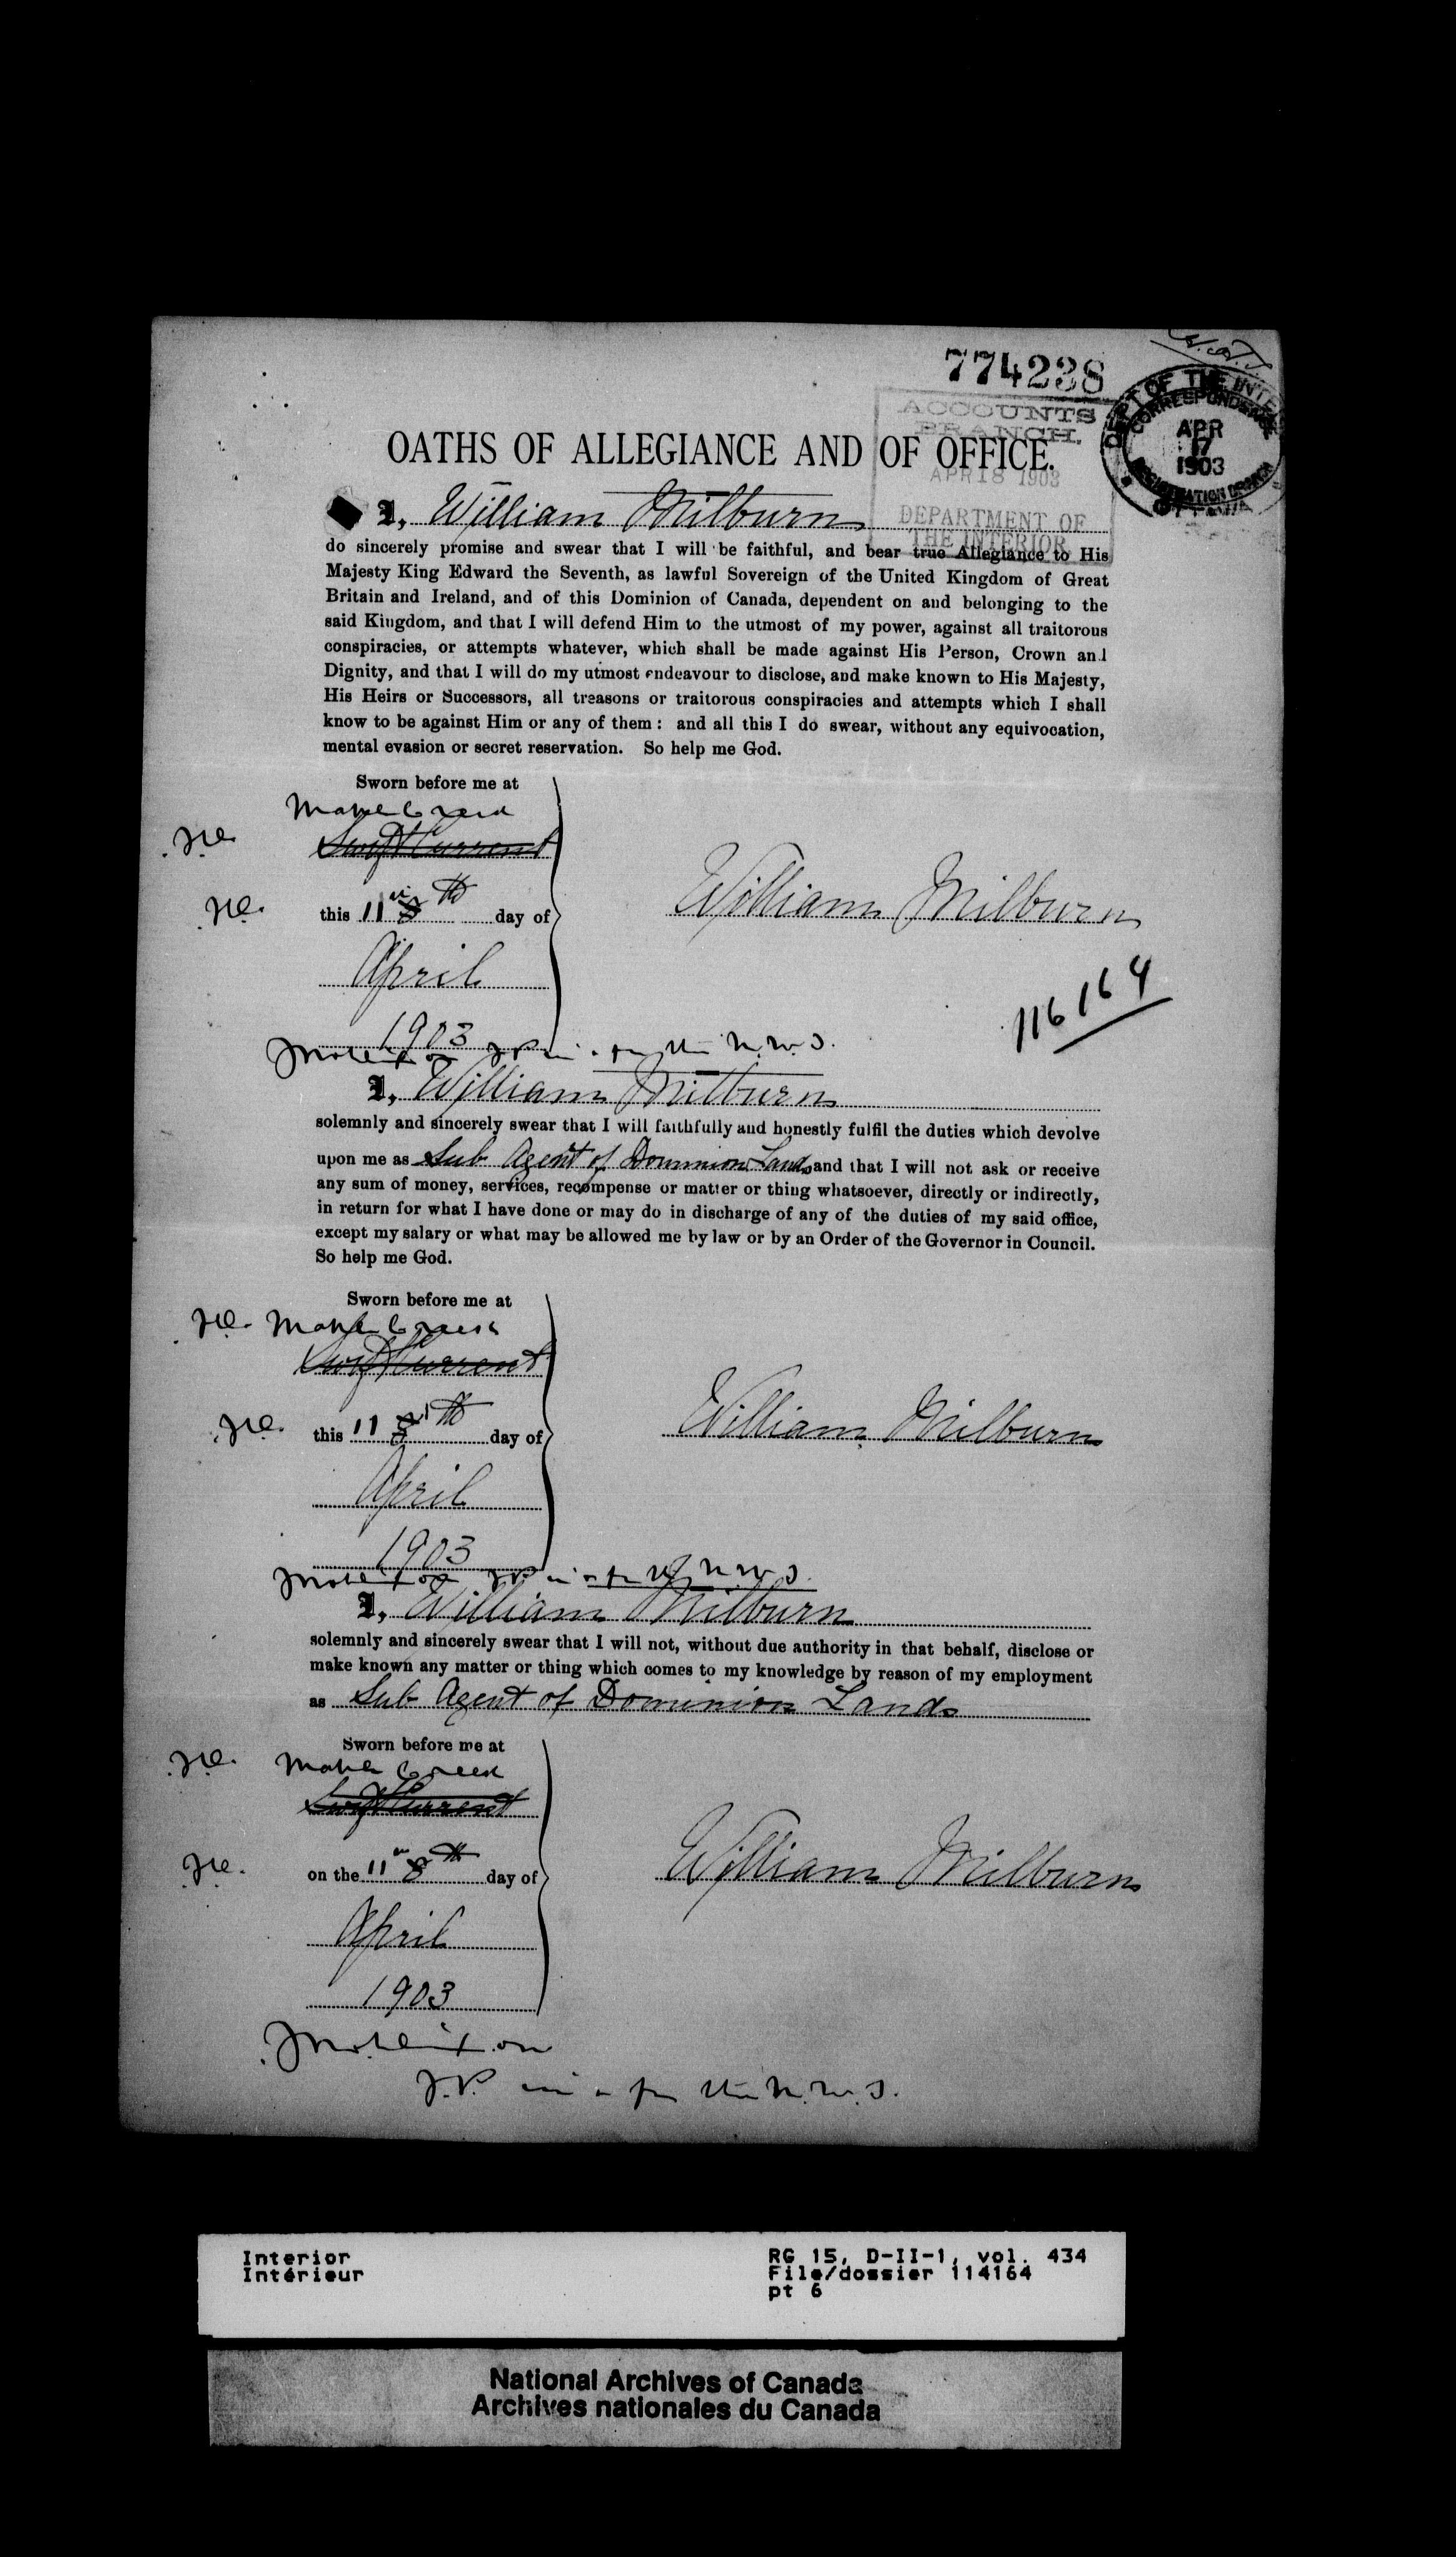 774238
ACCOUNTS
BRANCH.
APR 18 1903
DEPARTMENT OF
THE INTERIOR
DEPT OF THE INTE
CORRESPONDENCE
APR
17
1903
REGISTRATION BRANCH
OTTAWA
OATHS OF ALLEGIANCE AND OF OFFICE.
I, William Milburn
do sincerely promise and swear that I will be faithful, and bear true Allegiance to His
Majesty King Edward the Seventh, as lawful Sovereign of the United Kingdom of Great
Britain and Ireland, and of this Dominion of Canada, dependent on and belonging to the
said Kingdom, and that I will defend Him to the utmost of my power, against all traitorous
conspiracies, or attempts whatever, which shall be made against His Person, Crown and
Dignity, and that I will do my utmost endeavour to disclose, and make known to His Majesty,
His Heirs or Successors, all treasons or traitorous conspiracies and attempts which I shall
know to be against Him or any of them : and all this I do swear, without any equivocation,
mental evasion or secret reservation. So help me God.
Sworn before me at
Maple Creek
Swift Current
this 11 8th day of
April
1903
William Milburn
116164
J.P. in & for the N.W.T.
I, William Milburn
solemnly and sincerely swear that I will faithfully and honestly fulfil the duties which devolve
upon me as Sub Agent of Dominion Lands and that I will not ask or receive
any sum of money, services, recompense or matter or thing whatsoever, directly or indirectly,
in return for what I have done or may do in discharge of any of the duties of my said office,
except my salary or what may be allowed me by law or by an Order of the Governor in Council.
So help me God.
Sworn before me at
Maple Creek
Swift Current
this 11 8th day of
April
1903
William Milburn
J.P. in & for the N.W.T.
I, William Milburn
solemnly and sincerely swear that I will not, without due authority in that behalf, disclose or
make known any matter or thing which comes to my knowledge by reason of my employment
as Sub Agent of Dominion Lands
Sworn before me at
Maple Creek
Swift Current
on the 11 8th day of
April
1903
William Milburn
J.P. in & for the N.W.T.
Interior
Intérieur
RG 15, D-II-1, vol. 434
File/dossier 114164
pt 6
National Archives of Canada
Archives nationales du Canada